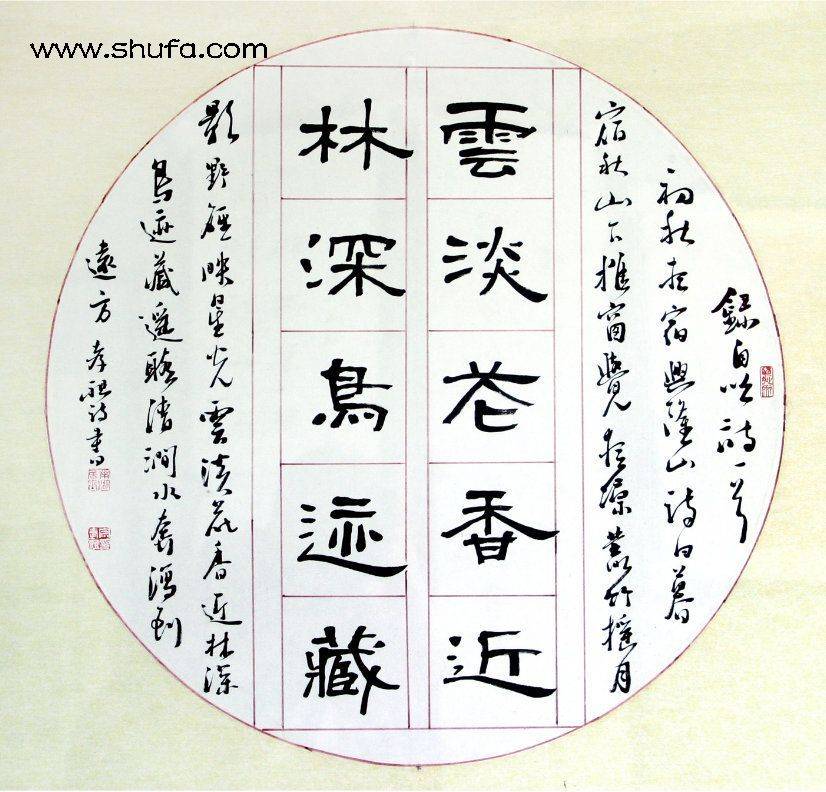 www.shufa.com
錄自吟詩一首
初秋夜宿興隆山詩曰暮
宿秋山下推窗覺夜涼叢竹搖月
雲淡花香近
林深鳥迹藏
影野徑映星光雲淡花香近林深
鳥迹藏遥聽清澗水奔瀉到
遠方 孝 詩書